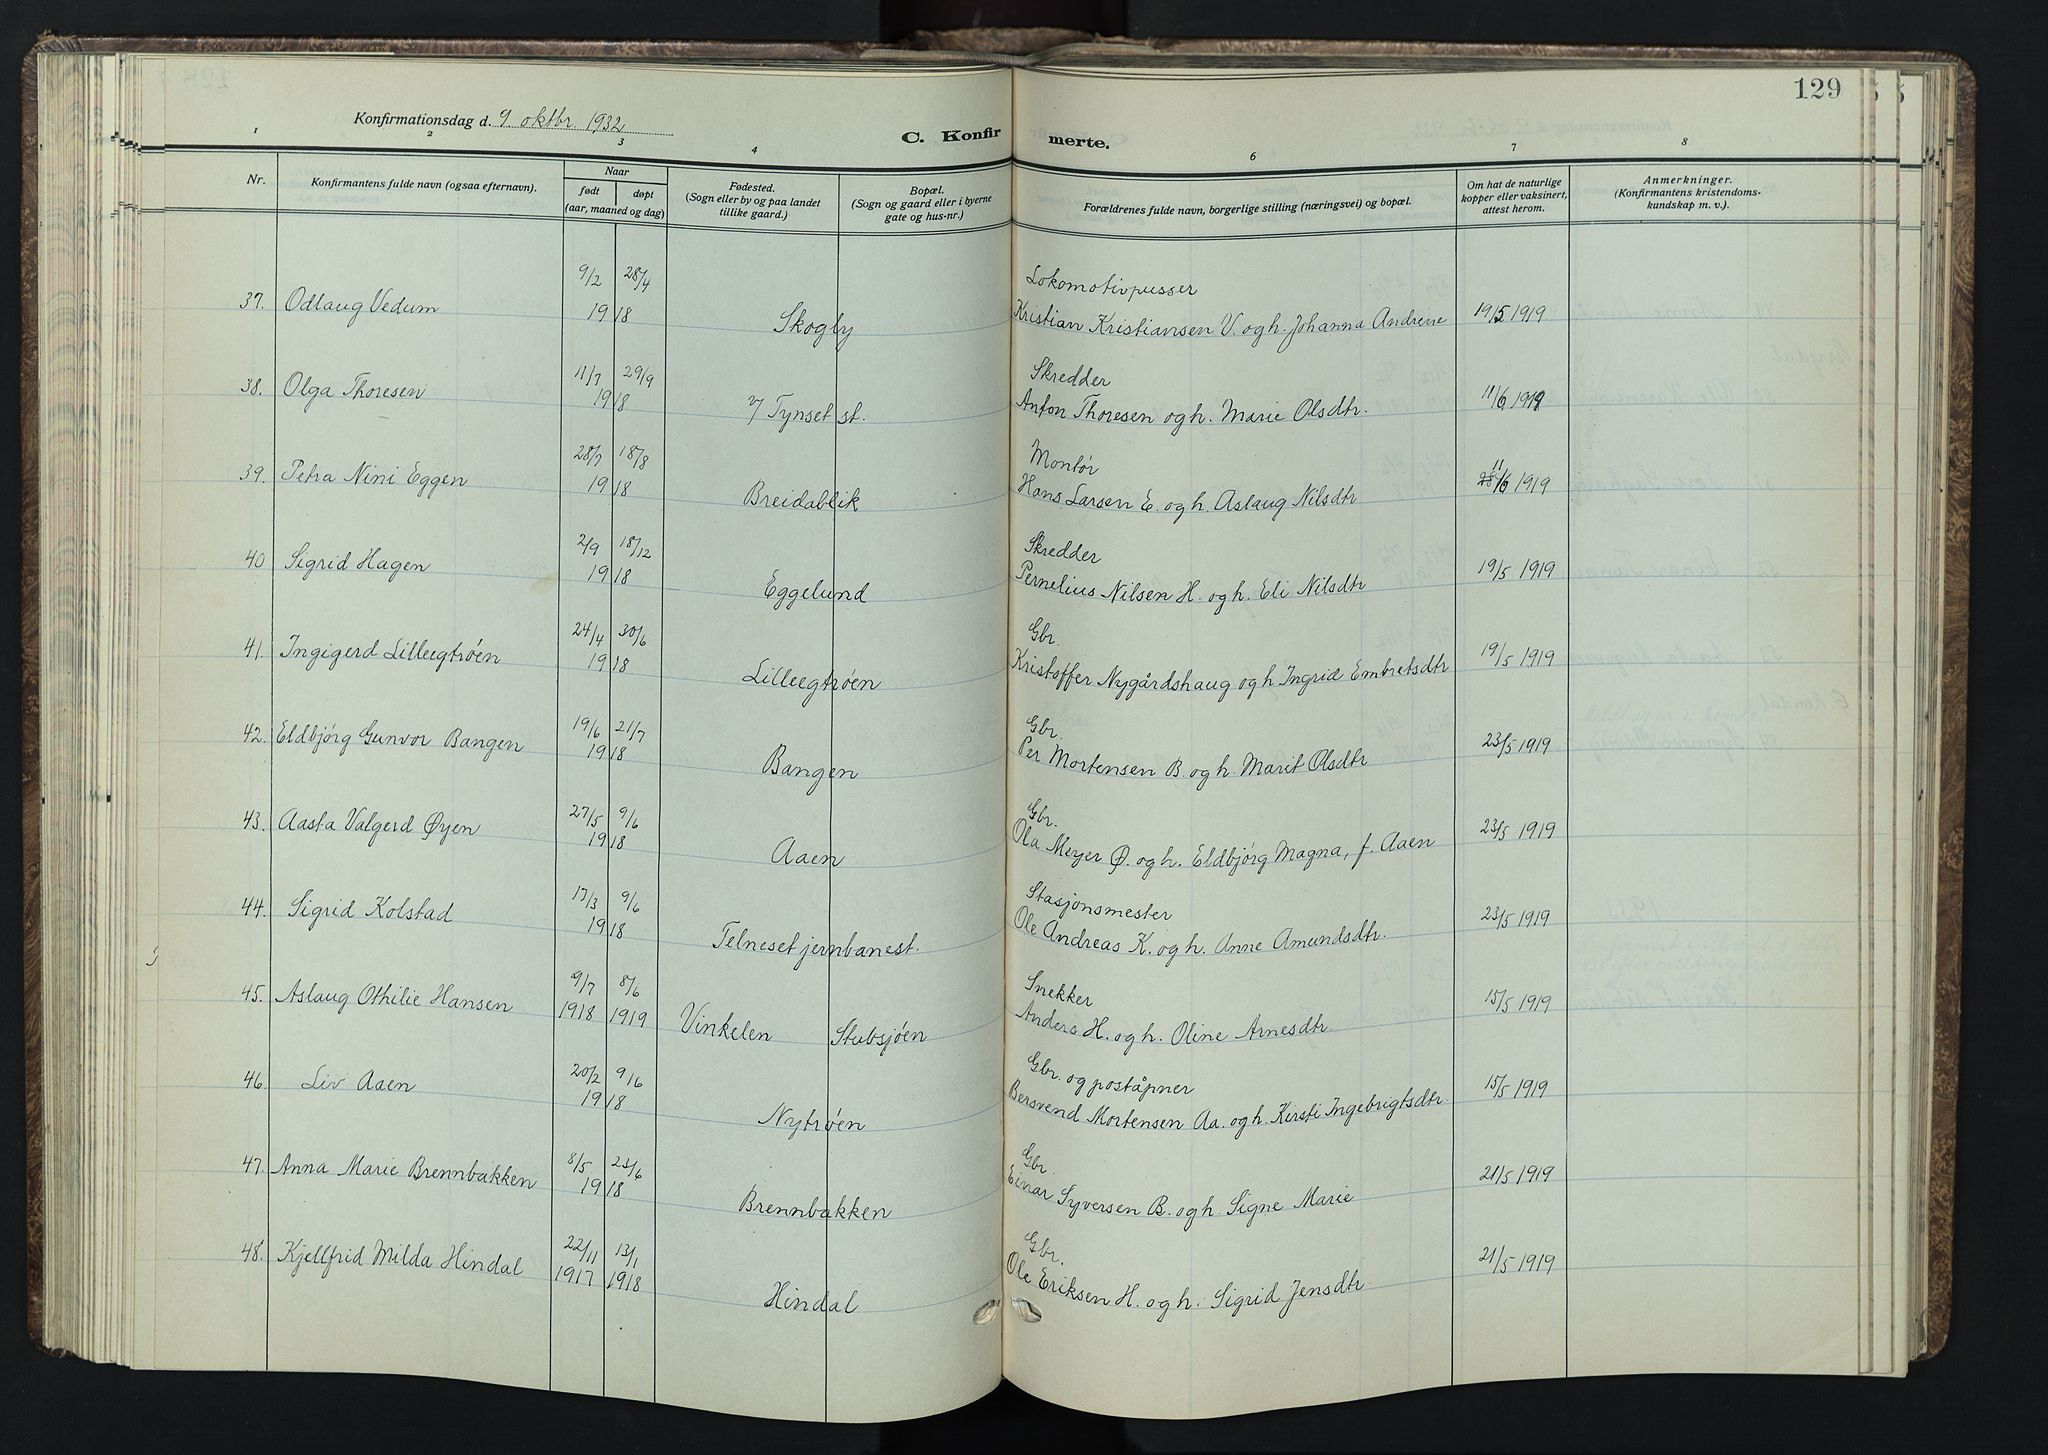 129
Konfirmationsdag d. 9 oktbr. 1932
C. Konfirmerte.
1 2 3 4 6 7 8
Nr.
Konfirmantens fulde navn (ogsaa efternavn).
Naar
født døpt
(aar, maaned og dag)
Fødested.
(Sogn eller by og paa landet
tillike gaard.)
Bopæl.
(Sogn og gaard eller i byerne
gate og hus-nr.)
Forældrenes fulde navn, borgerlige stilling (næringsvei) og bopæl.
Om hat de naturlige
kopper eller vaksinert,
attest herom.
Anmerkninger.
(Konfirmantens kristendoms-
kundskap m. v.).
9/2 28/4 Lokomotivpusser
37. Odlaug Vedum 1918 Skogly Kristian Kristiansen V. og h. Johanna Andrine 19/5 1919
11/7 29/9 Skredder
38. Olga Thoresen 1918 v/ Tynset st. Anton Thoresen og h. Marie Olsdtr. 11/6 1919
28/7 18/8 Montør
39. Petra Nini Eggen 1918 Breidablik Hans Larsen E. og h. Aslaug Nilsdtr 11/6 1919
2/9 18/12 Skredder
40 Sigrid Hagen 1918 Eggelund Pernelius Nilsen H. og h. Eli Nilsdtr 19/5 1919
24/4 30/6 Gbr.
41. Ingigerd Lilleegtrøen 1918 Lilleegtrøen Kristoffer Nygårdshaug og h Ingrid Embretsdtr 19/5 1919
19/6 21/7 Gbr.
42. Eldbjørg Gunvor Bangen 1918 Bangen Per Mortensen B. og h. Marit Olsdtr 23/5 1919
27/5 9/6 Gbr.
43. Aasta Valgerd Øyen 1918 Aaen Ola Meyer Ø. og h. Eldbjørg Magna, f. Aaen 23/5 1919
17/3 9/6 Stasjonsmester
44. Sigrid Kolstad 1918 Telneset jernbanest. Ole Andreas K. og h. Anne Amundsdtr. 23/5 1919
9/7 8/6 Snekker
45. Aslaug Othilie Hansen 1918 1919 Vinkelen Stubsjøen Anders H. og h. Oline Arnesdtr. 15/5 1919
20/2 9/6 Gbr. og poståpner
46. Liv Aaen 1918 Nytrøen Bersvend Mortensen Aa. og h. Kirsti Ingebrigtsdtr. 15/5 1919
8/5 23/6 Gbr.
47. Anna Marie Brennbakken 1918 Brennbakken Einar Syversen B. og h. Signe Marie 21/5 1919
22/11 13/1 Gbr.
48. Kjellfrid Milda Hindal 1917 1918 Hindal Ole Eriksen H. og h. Sigrid Jensdtr. 21/5 1919